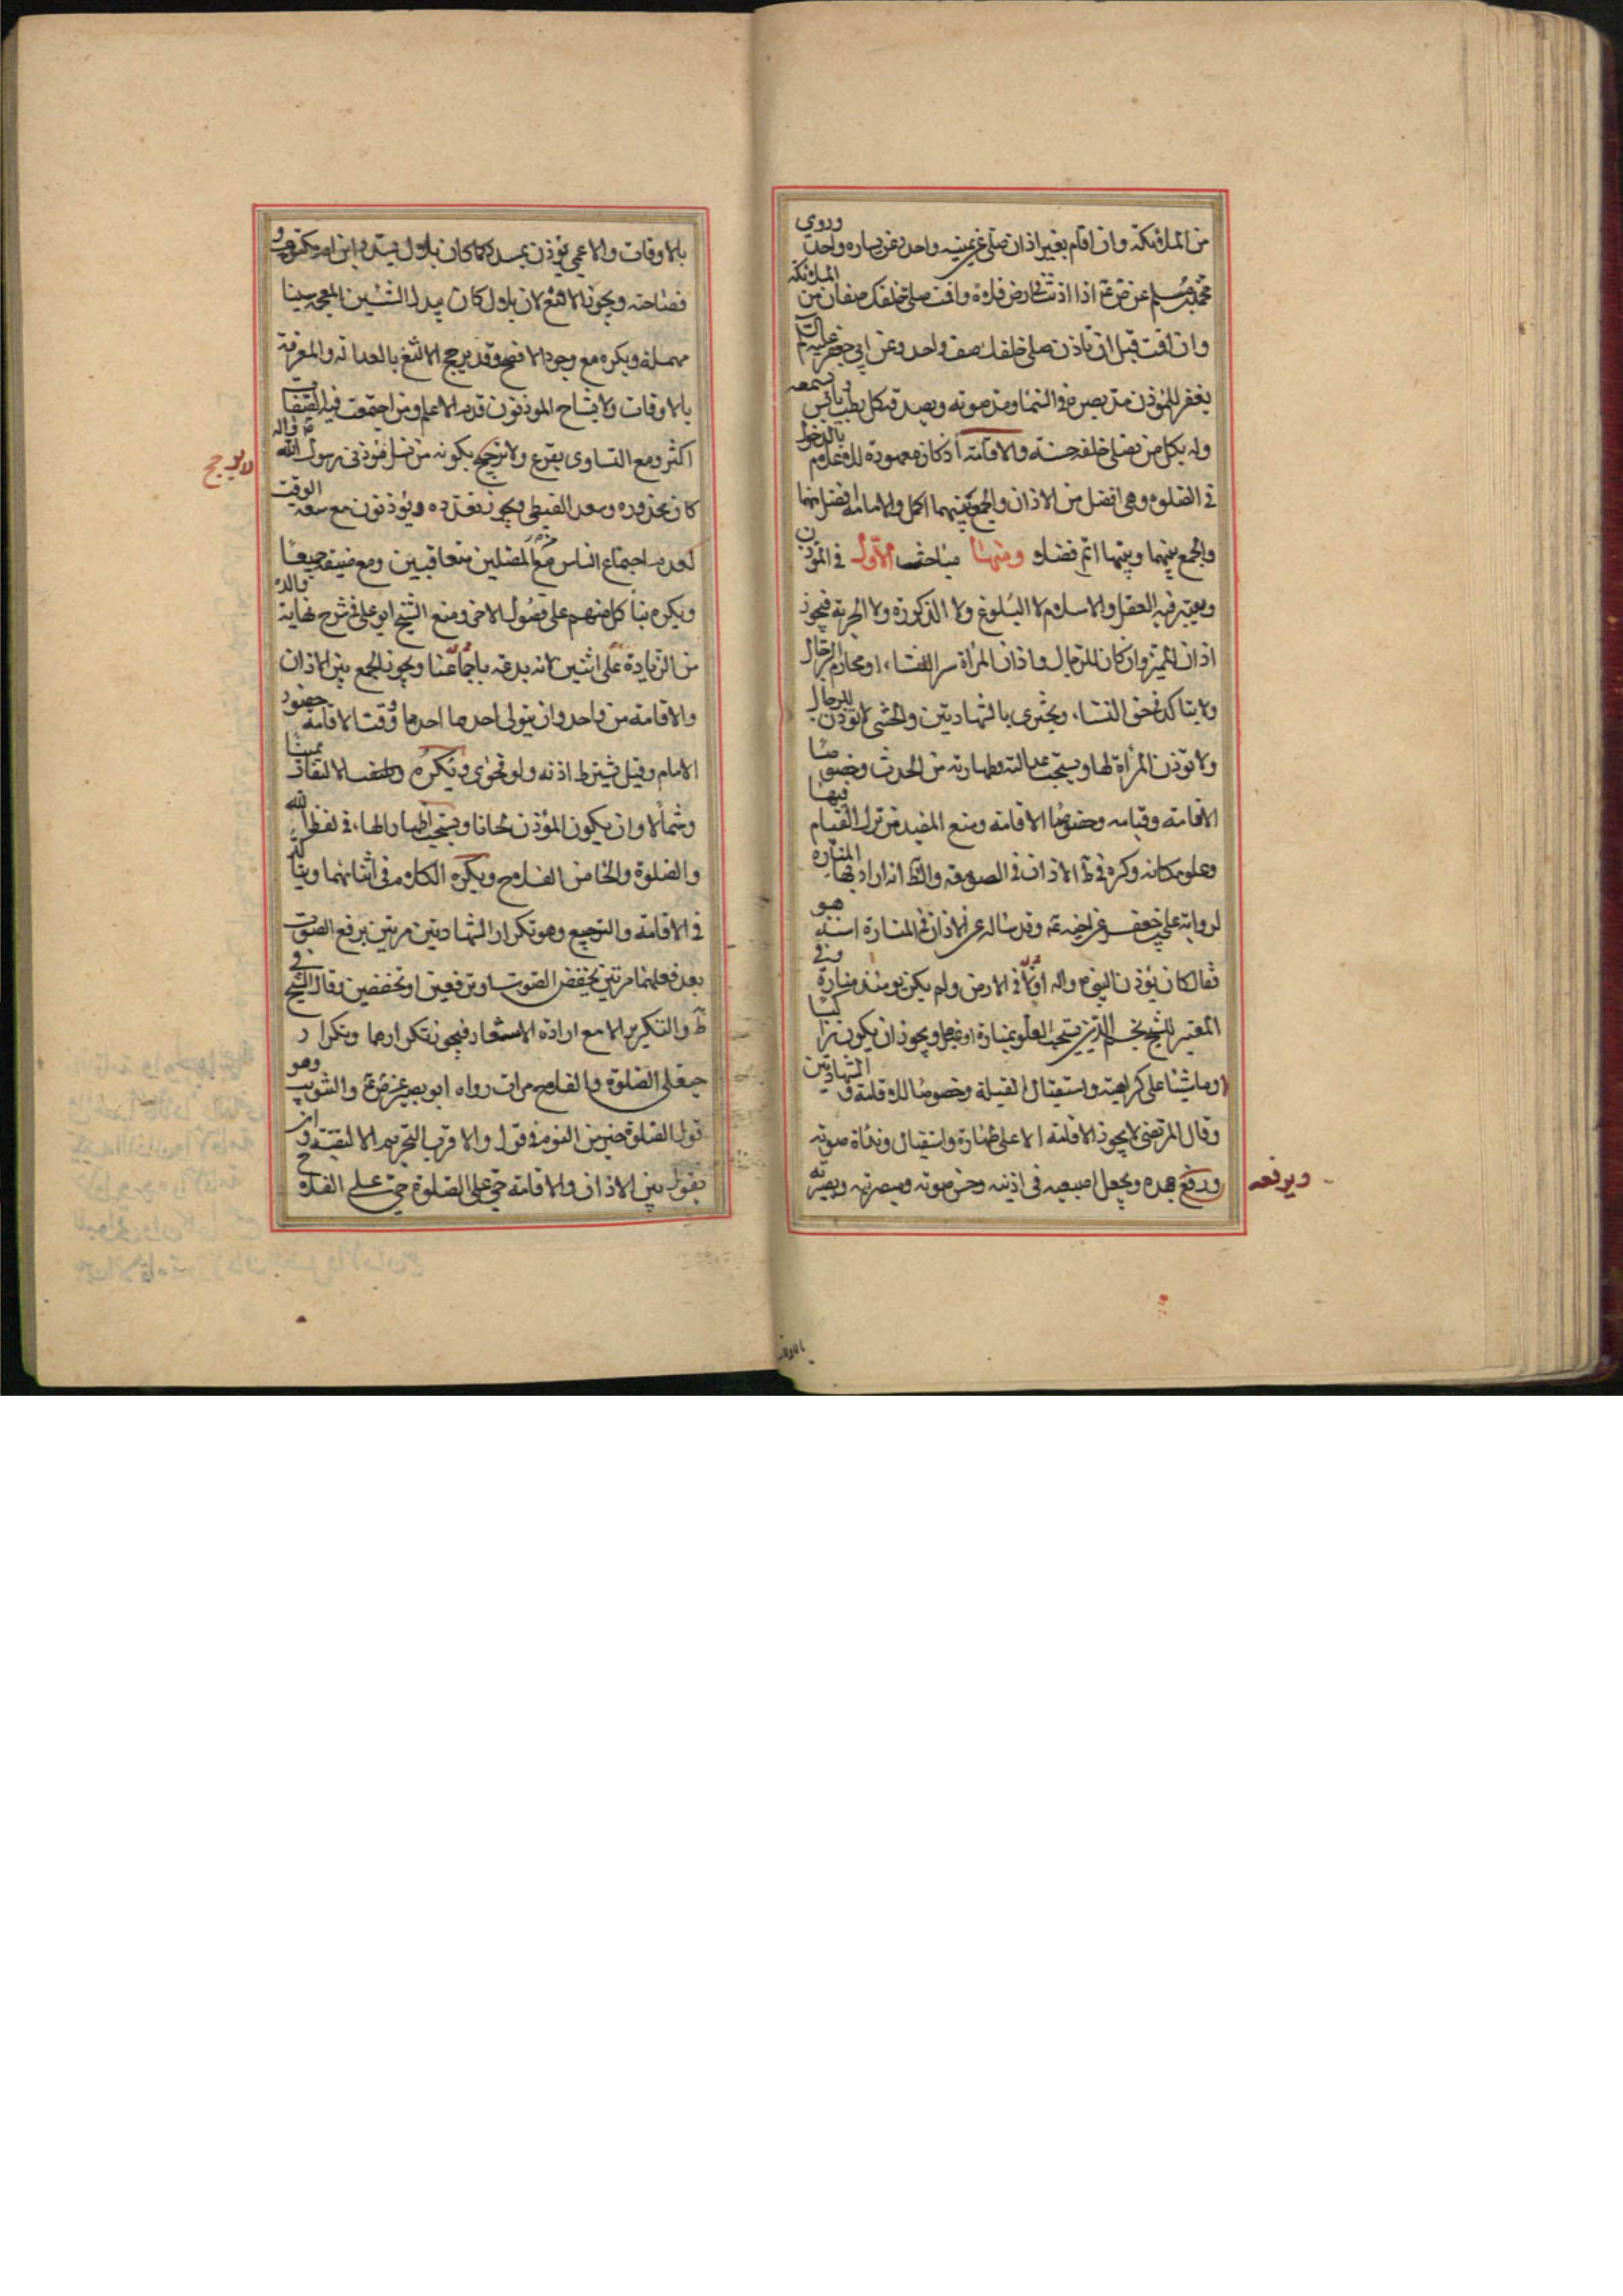 من الملائكة وان اقام بغير اذان صلى عن يمينه واحد وعن يساره واحد وروى
محمد بن مسلم عن ص ع اذا اذنت في ارض فلاة واقمت صلى خلفك صفان من الملائكة
وان اقمت قبل ان تاذن صلى خلفك صف واحد وعن ابي جعفر عليه السلم
يغفر للمؤذن مد بصره في السماء ومد صوته ويصدقه كل رطب ويابس سمعه
وله بكل من يصلى خلفه حسنة والاقامة اذ كان معهودة للاعلام بالدخول
في الصلوة وهي افضل من الاذان والجمع بينهما اكمل والامامة افضل منهما
والجمع بينهما وبينها اتم فضلا ومنهنا مباحث الاول في المؤذن
ويعتبر فيه العقل والاسلام لا البلوغ ولا الذكورة ولا الحرية فيجوز
اذان المميز وان كان للرجال واذان المراة سرا للنساء او محارم الرجال
ولا يتاكد في حق النساء ويجتزى بالشهادتين والخنثى لا تؤذن للرجال
ولا تؤذن المرأة لها ويستحب عدالته وطهارته من الحدث وخصوصا
الاقامة وقيامه وخصوصا الاقامة ومنع المفيد من ترك القيام فيها
وعلو مكانه وكره في ط الاذان في الصومعة والظ انه اراد بها المنارة
لرواية علي بن جعفر عن اخيه ع وقد ساله عن الاذان في المنارة اسنة هو
فقال كان يؤذن للنبي ص واله اولا في الارض ولم يكن يومئذ منارة وفي
المعتبر للشيخ نجم الدين يستحب العلو بمنارة او غيرها ويجوز ان يكون راكبا
او ماشيا على كراهية واستقبال القبلة وخصوصا للاقامة و الشهادتين
وقال المرتضى لا يجوز الاقامة الا على طهارة واستقبال ونداوة صوته
ورفع جهده ويجعل اصبعيه في اذنيه وحسن صوته ومبصريته وبصيرته
ويرفعه
بالاوقات والاعمى يؤذن بمسدد كما كان بلال يسدد ابن ام مكتوم و
فصاحته ويجوز الالثغ لان بلال كان يبدل الشين المعجمة سينا
مهملة ويكره مع وجود الافصح وقد يرجح الالثغ بالعدالة والمعرفة
بالاوقات ولو تشاح المؤذنون قدم الاعلم ومن اجتمعت فيه الصفات
اكثر ومع التساوى يقرع ولا ترجيح بكونه من نسل مؤذنى رسول الله ص واله
لا يرجح
كابى محذورة وسعد القرظى ويجوز تعدده ويؤذنون مع سعة الوقت
لعدم اجتماع الناس من المصلين متعاقبين ومع ضيقه جميعا
ويكره بناء كل منهم على فصول الاخر ومنع الشيخ ابو علي في شرح نهاية والده
من الزيادة على اثنين لانه بدعة باجماعنا ويجوز الجمع بين الاذان
والاقامة من واحد وان يتولى احدهما احدها ووقت الاقامة حضور
الامام وقيل يشترط اذنه ولو فحوى ويكره الالتفات يمينا
وشمالا وان يكون المؤذن لحانا ويستحب اظهار الهاء في لفظ الله
والصلوة والحاء من الفلاح ويكره الكلام في اثنائهما ويتاكد
في الاقامة والترجيع وهو تكرار الشهادتين مرتين برفع الصوت
بعد فعلهما مرتين بخفض الصوت او برفعين او بخفضين وقال الشيخ في
ط والتكرير الا مع ارادة الاشعار فيجوز تكرارهما وتكرار
حيعلى الصلوة والفلاح مرات رواه ابو بصير عن ص ع والتثويب وهو
قول الصلوة خير من النوم في قول والاقرب التحريم الا لتقية و ان
يقول بين الاذان والاقامة حي على الصلوة حي على الفلاح